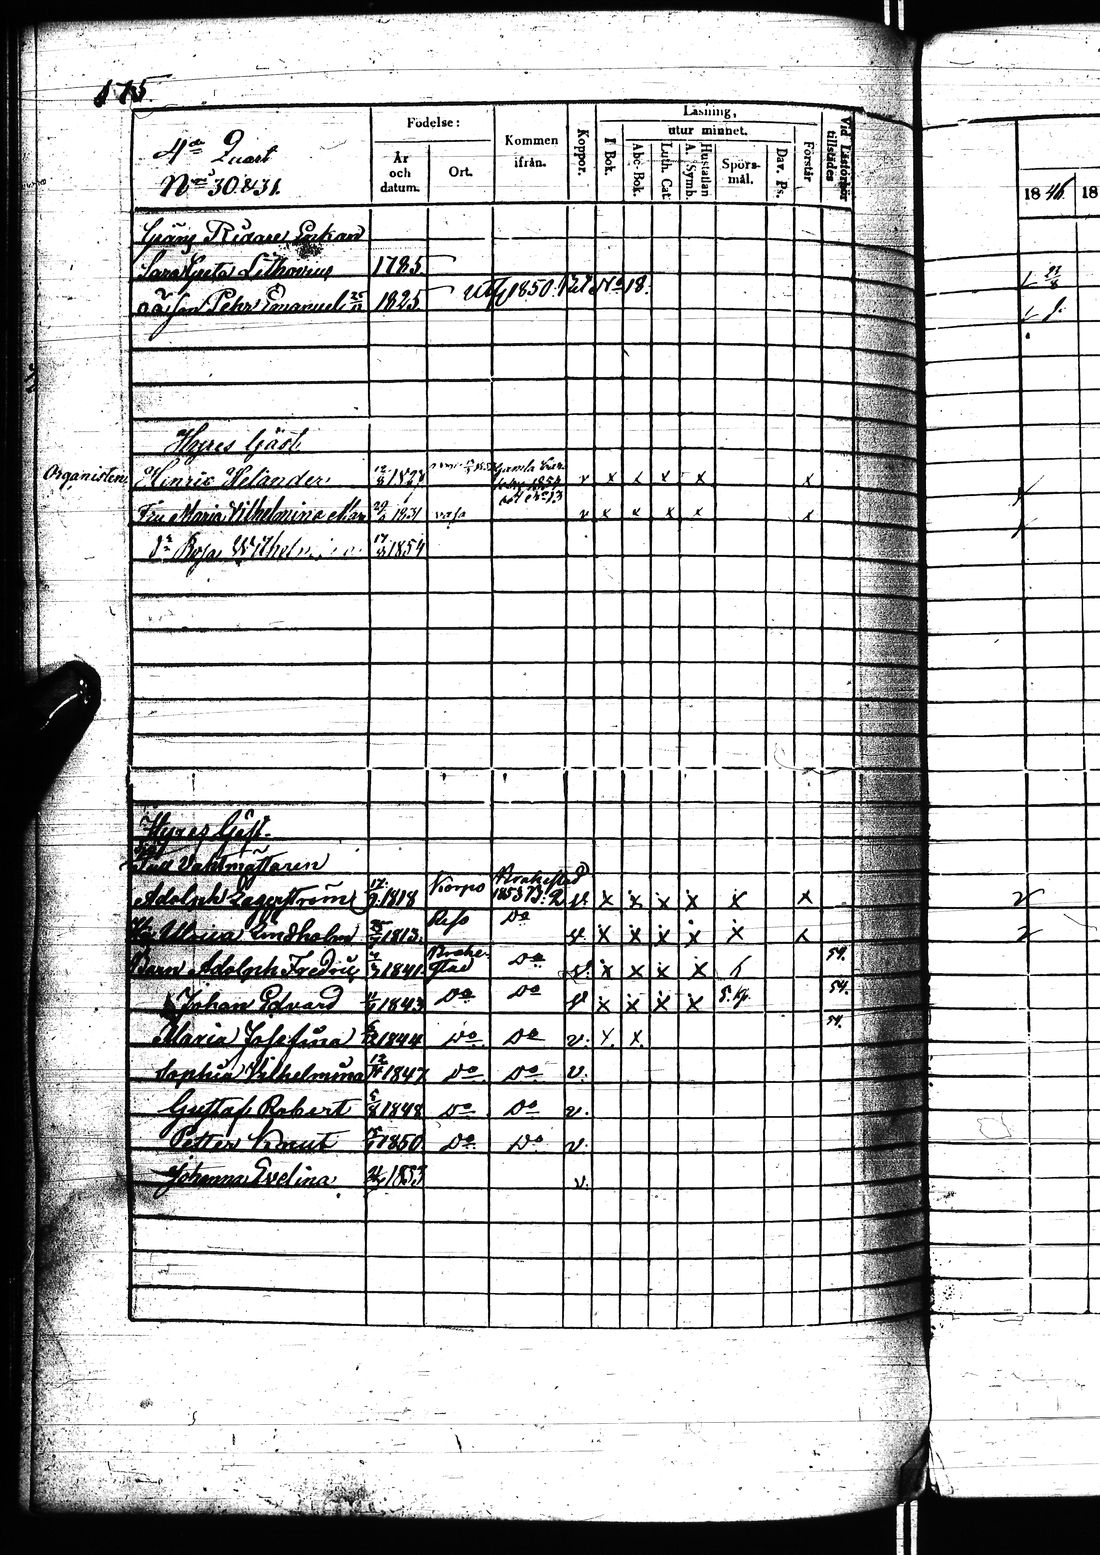 175.
4de Quart
Nris 30 & 31.
Födelse:
År och datum.
Ort.
Kommen ifrån.
Koppor.
Läsning,
I Bok.
utur minnet.
Abc-Bok.
Luth. Cat.
Hustaflan A. Symb.
Spörs-mål.
Dav. Ps.
Förstår
Vid Läsförhör tillstädes
1846 18
Enkan
Sara Greta Lithovius 1785
Son Pehr Emanuel 1825 utfl. 1850 18.
Hyres Gäst
Organisten Hinric Helander 12/9 Gamla v x x x x x
Fru Maria Vilhelmina 1831 vasa v x x x x x
Dr Rosa Wilhelmina 17/9 1854
Hyres Gäst.
Vaktmästaren
Adolph Lagerström 17/9 1818 Korpo Brahestad 1853 v x x x x x x
Ulrica Lindholm 1813. Do v x x x x x x
Barn Adolph Fredric 1841 Brahestad Do v. x x x x 54.
Johan Edvard 1843 Do Do v x x x x 54.
Maria Josefina 1844 Do Do v. x. x. 54.
Sophia Vilhelmina 1847 Do Do v.
Gustaf Robert 1848 Do Do v.
Petter Knut 1850 Do Do v.
Johanna Evelina 1853 v.